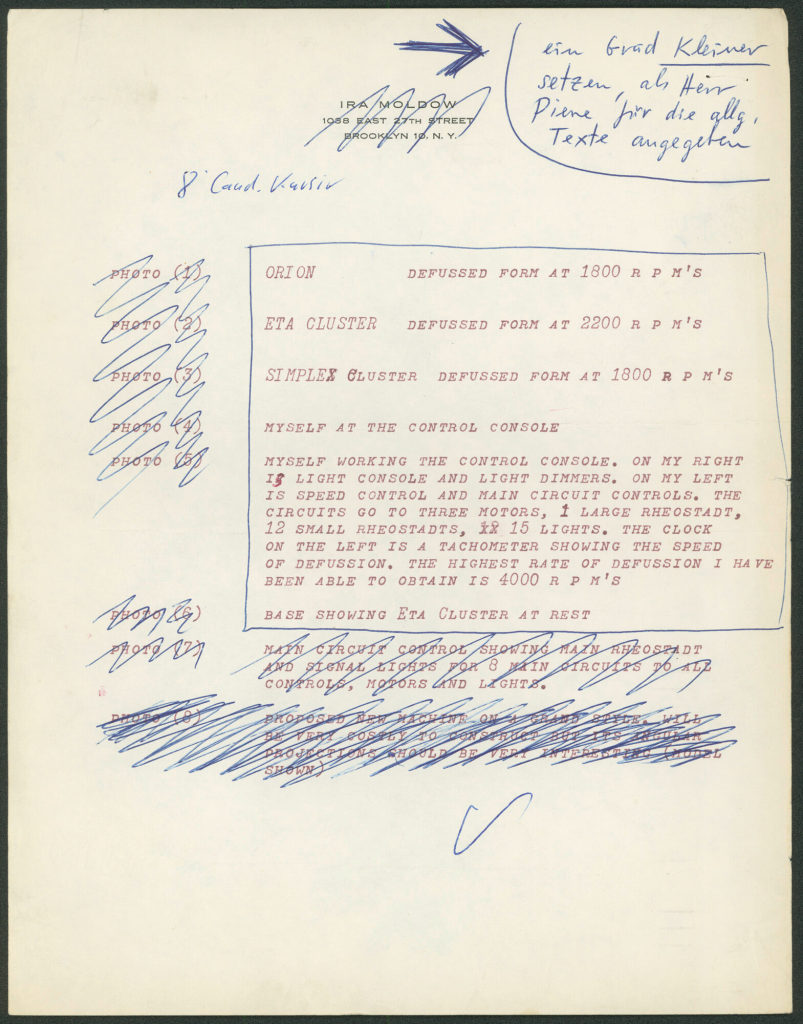 ein Grad Kleiner
setzen, als Herr
Piene für die allg.
Texte angegeben
IRA MOLDOW
1038 EAST 27TH STREET
BROOKLYN 10, N. Y.
8° Caud. Kursiv
PHOTO (1) ORION DEFUSSED FORM AT 1800 R P M'S
PHOTO (2) ETA CLUSTER DEFUSSED FORM AT 2200 R P M'S
PHOTO (3) SIMPLEX CLUSTER DEFUSSED FORM AT 1800 R P M'S
PHOTO (4) MYSELF AT THE CONTROL CONSOLE
PHOTO (5) MYSELF WORKING THE CONTROL CONSOLE. ON MY RIGHT
IS LIGHT CONSOLE AND LIGHT DIMMERS. ON MY LEFT
IS SPEED CONTROL AND MAIN CIRCUIT CONTROLS. THE
CIRCUITS GO TO THREE MOTORS, 1 LARGE RHEOSTADT,
12 SMALL RHEOSTADTS, 15 LIGHTS. THE CLOCK
ON THE LEFT IS A TACHOMETER SHOWING THE SPEED
OF DEFUSSION. THE HIGHEST RATE OF DEFUSSION I HAVE
BEEN ABLE TO OBTAIN IS 4000 R P M'S
PHOTO (6) BASE SHOWING ETA CLUSTER AT REST
PHOTO (7) MAIN CIRCUIT CONTROL SHOWING MAIN RHEOSTADT
AND SIGNAL LIGHTS FOR 8 MAIN CIRCUITS TO ALL
CONTROLS, MOTORS AND LIGHTS.
PHOTO (8) PROPOSED NEW MACHINE ON A GRAND STYLE. WILL
BE VERY COSTLY TO CONSTRUCT BUT ITS ANGULAR
PROJECTIONS SHOULD BE VERY INTERESTING (MODEL
SHOWN)